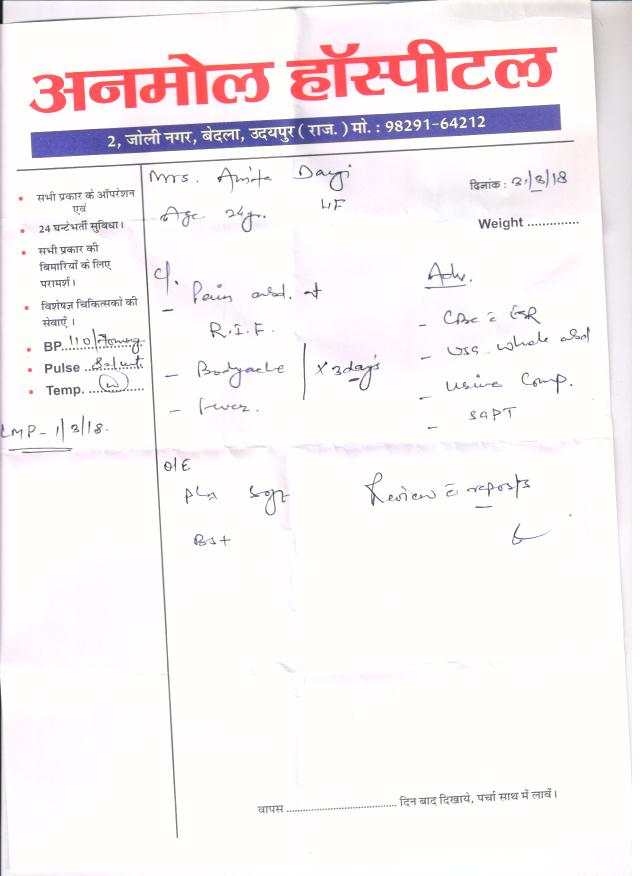 अनमोल हॉस्पीटल
2, जोली नगर, बेदला, उदयपुर ( राज. ) मो. : 98291-64212
Mrs. Anita Dangi
Age 24yr. /F
दिनांक : 31/3/18
Weight .............
• सभी प्रकार के ऑपरेशन
एवं
• 24 घन्टे भर्ती सुविधा।
• सभी प्रकार की
बिमारियों के लिए
परामर्श।
• विशेषज्ञ चिकित्सकों की
सेवाएँ ।
• BP. 110/70mmHg
• Pulse 82/mt
• Temp. (N)
LMP - 1/3/18.
C/o.
- Pain abd. at
R.I.F.
- Bodyache
- fever.
x 3 days
Adv.
- CBC c ESR
- USG. whole abd
- Urine Comp.
- SGPT
O/E
P/A Soft
BS+
Review c reports
वापस ........................................ दिन बाद दिखाये, पर्चा साथ में लावें।